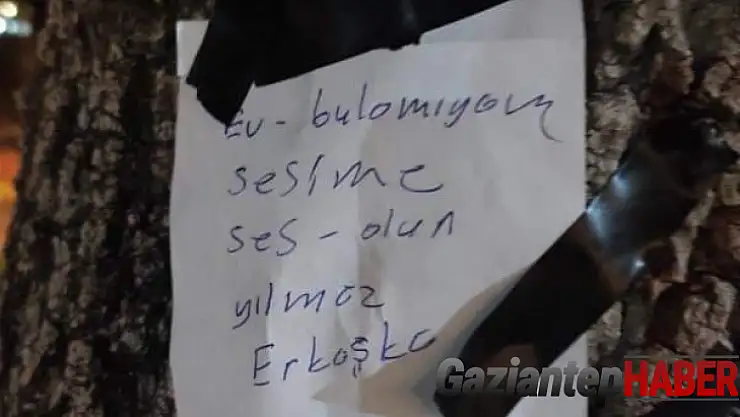 Ev - bulamıyorum
sesime
ses - olun
yılmaz
Erkoşka
GaziantepHABER